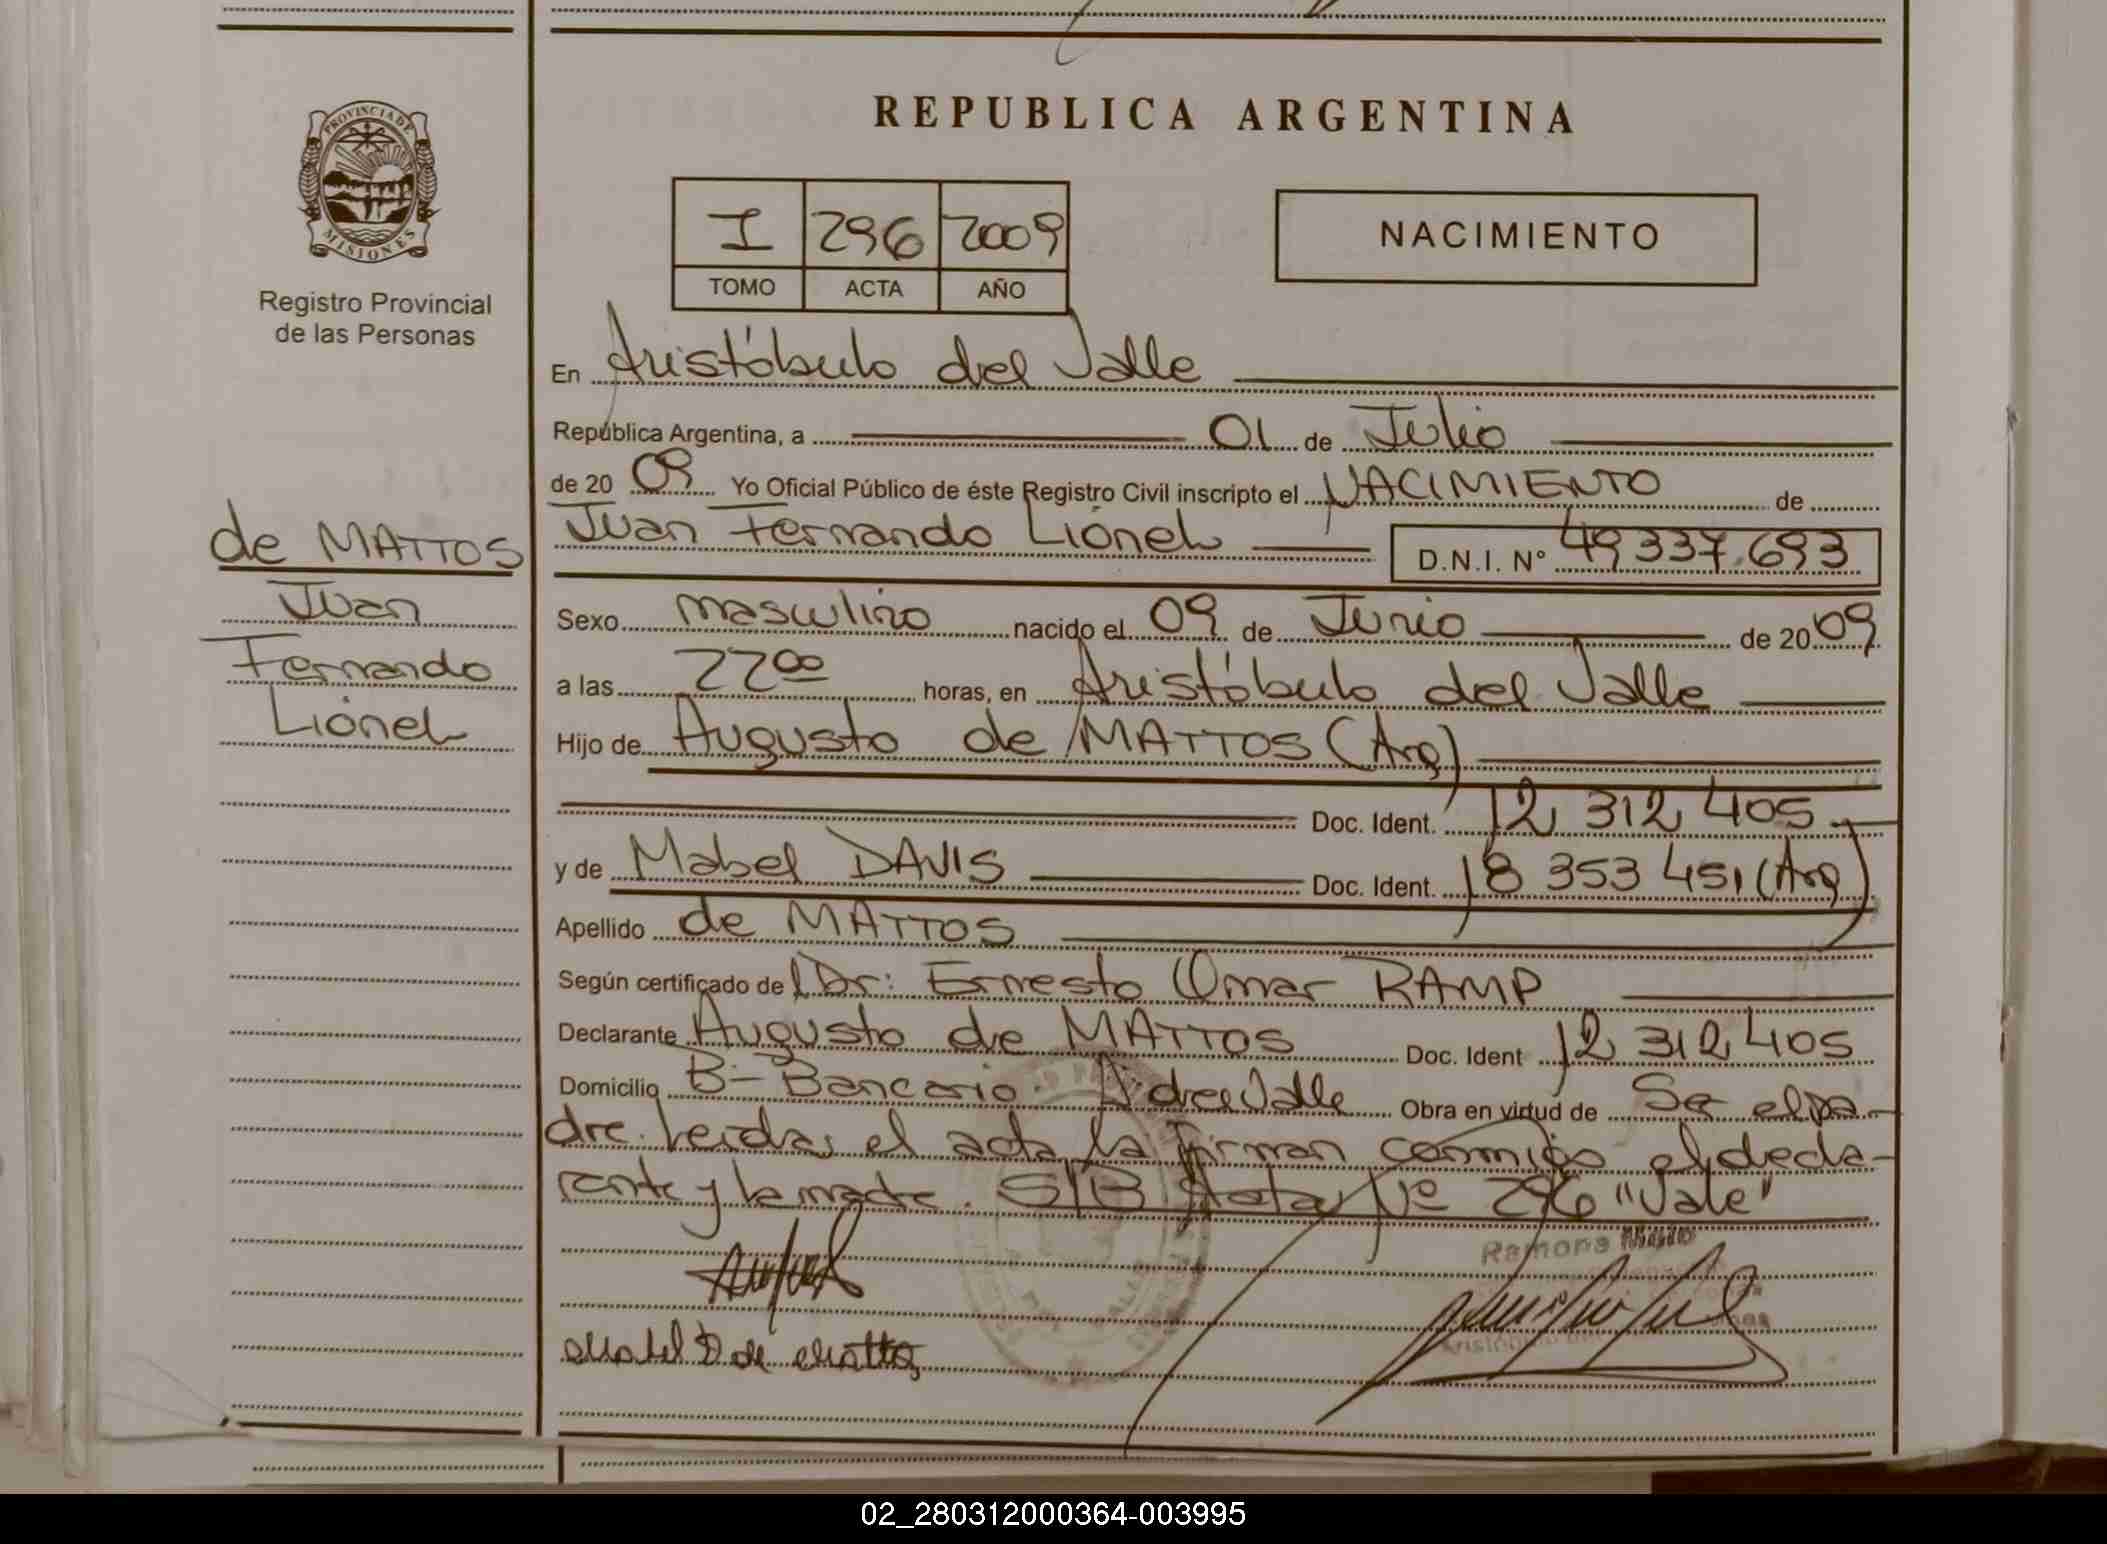 PROVINCIA DE
MISIONES
Registro Provincial
de las Personas
de MATTOS
Juan
Fernando
Liónel
REPUBLICA ARGENTINA
I 296 2009
TOMO ACTA AÑO
NACIMIENTO
En Aristóbulo del Valle
República Argentina, a 01 de Julio
de 20 09 Yo Oficial Público de éste Registro Civil inscripto el NACIMIENTO de
Juan Fernando Liónel D.N.I. N° 49 337.693
Sexo masculino nacido el 09 de Junio de 2009
a las 22 00 horas, en Aristóbulo del Valle
Hijo de Augusto de MATTOS (Arg)
Doc. Ident. 12 312 405
y de Mabel DAVIS Doc. Ident. 18 353 451 (Arg)
Apellido de MATTOS
Según certificado del Dr: Ernesto Omar RAMP
Declarante Augusto de MATTOS Doc. Ident 12 312 405
Domicilio B- Bancario A del Valle Obra en virtud de Ser el pa-
dre. Leida el acta la firman conmigo el decla-
rante y la madre. S/B Acta Nº 296 "Vale"
Ramona
Mabel D de Mattos
02_280312000364-003995